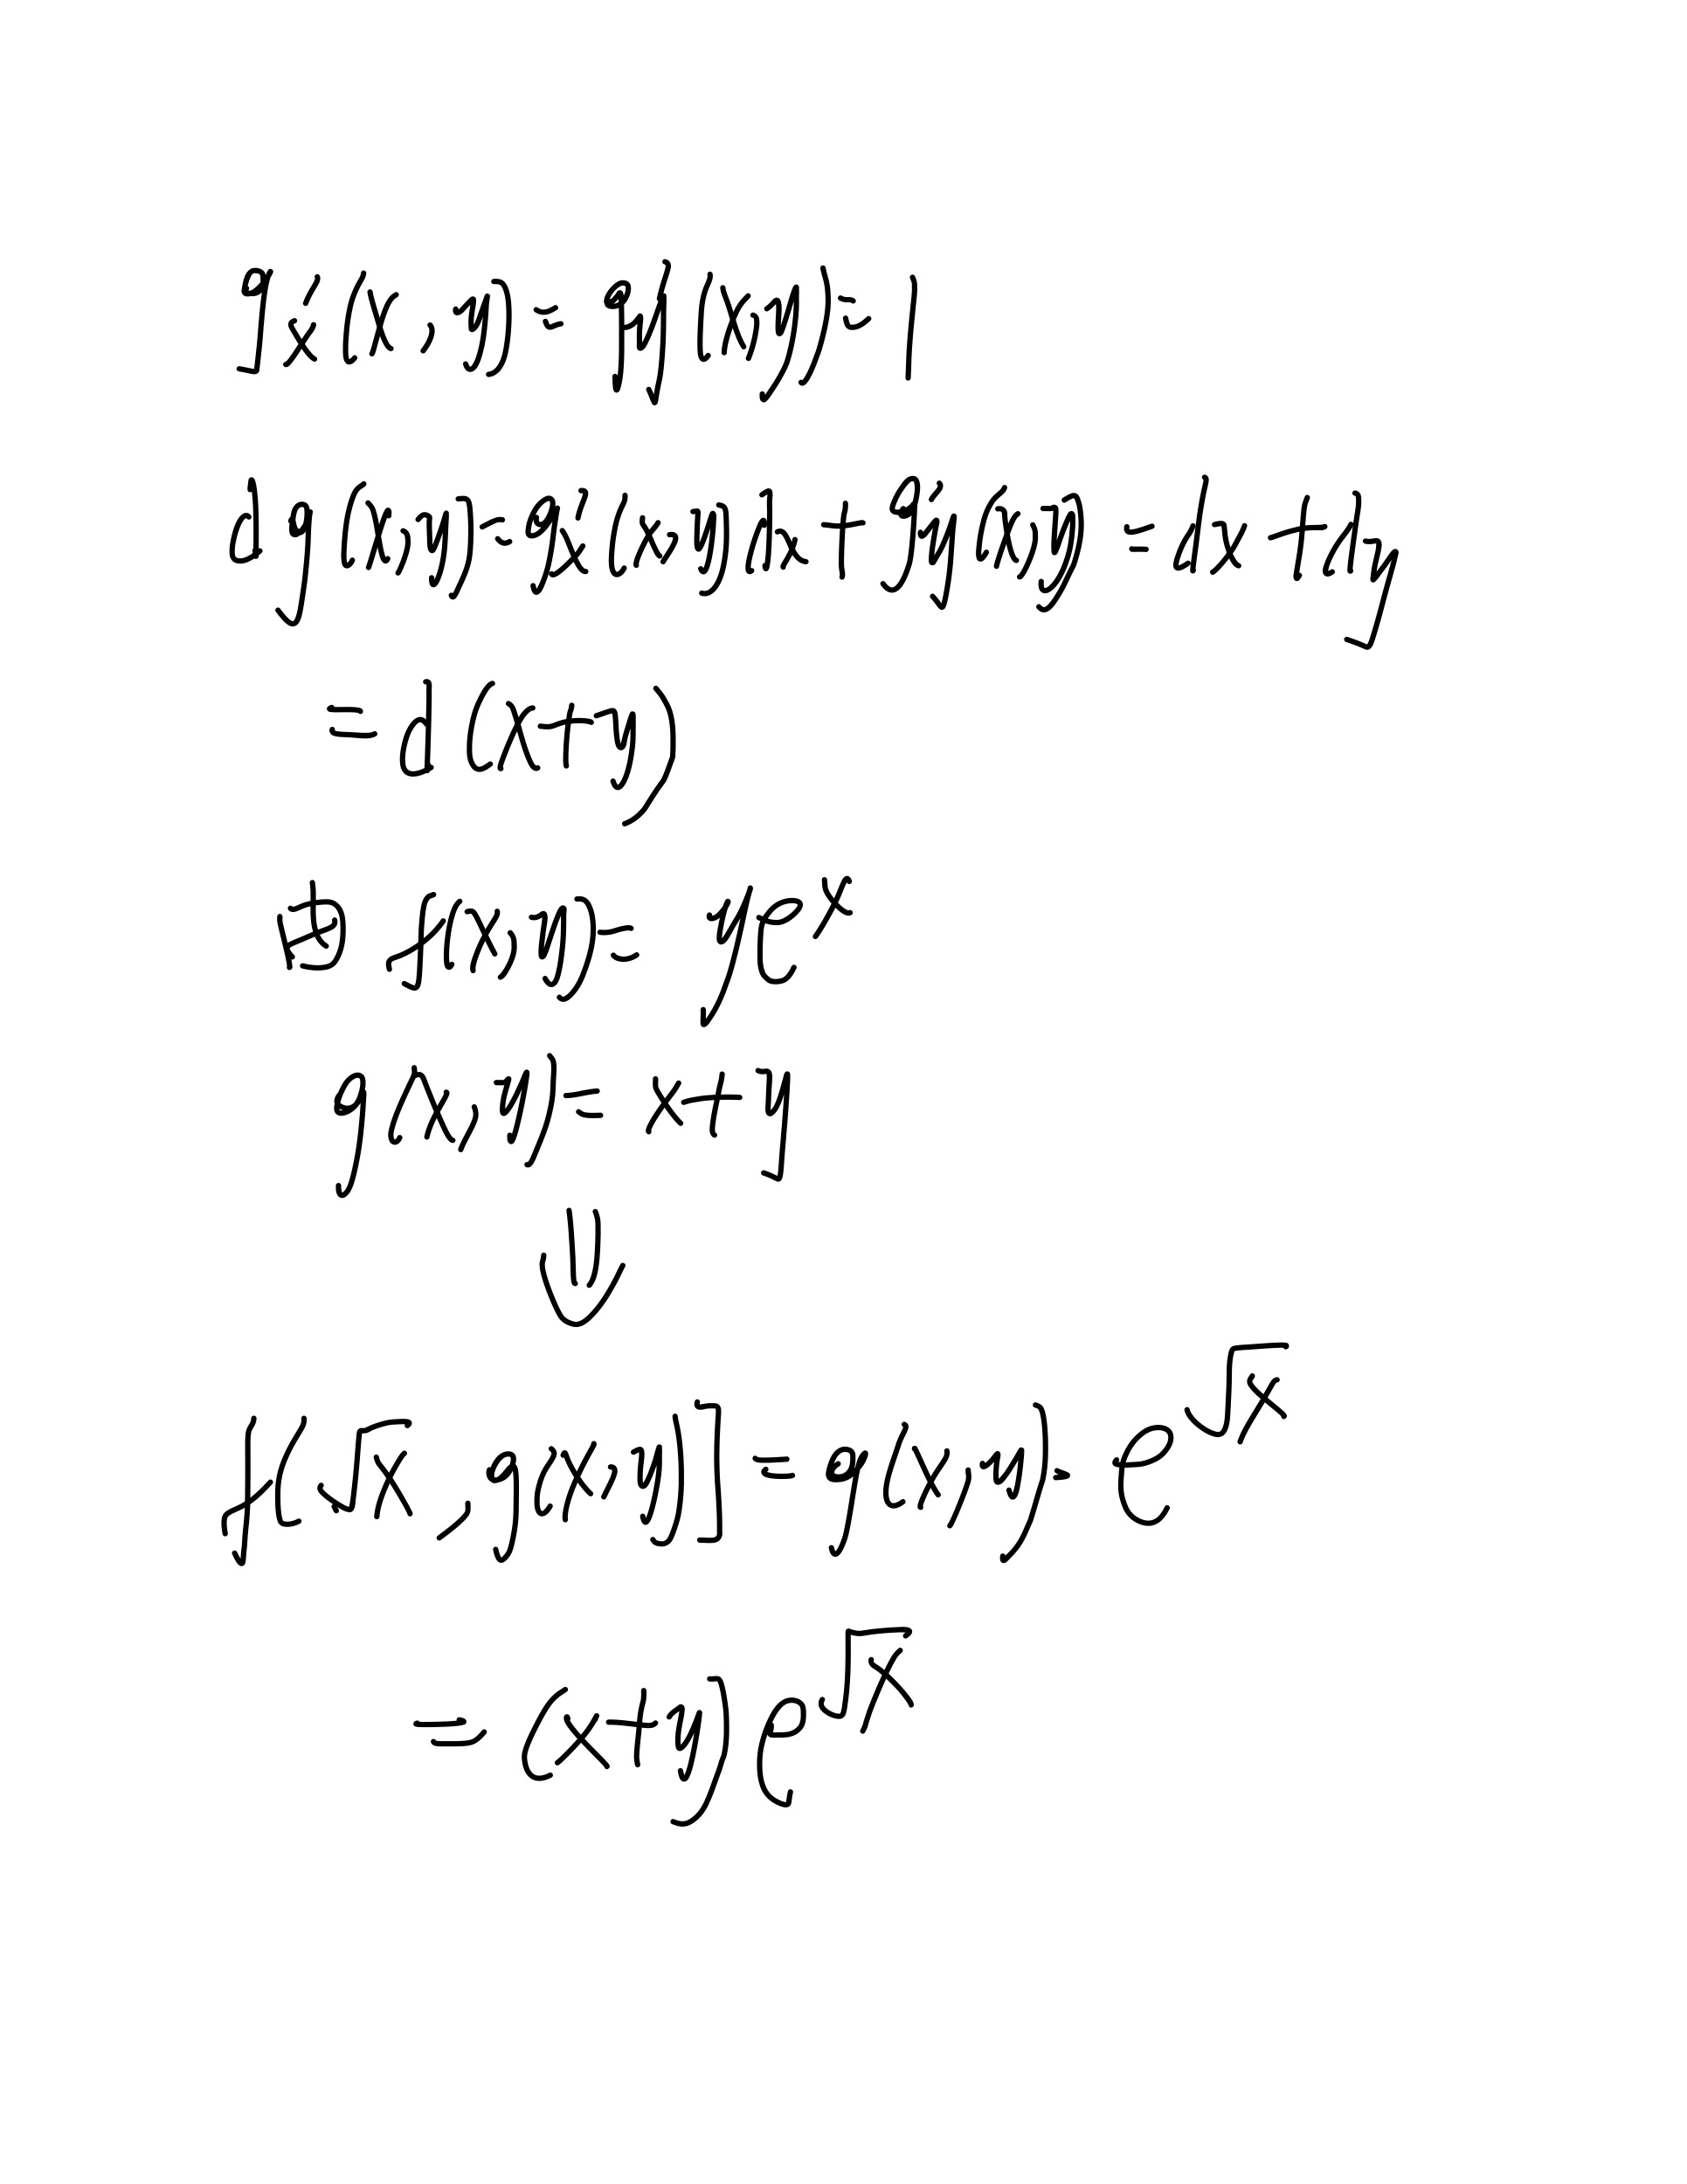 g'x(x,y)=g'y(x,y)=1
dg(x,y)=g'x(x,y)dx+g'y(x,y)=dx+dy
=d(x+y)
由 f(x,y)= ye^x
g(x,y)= x+y
⇓
f(√x,g(x,y)]=g(x,y)=e^√x
=(x+y)e^√x